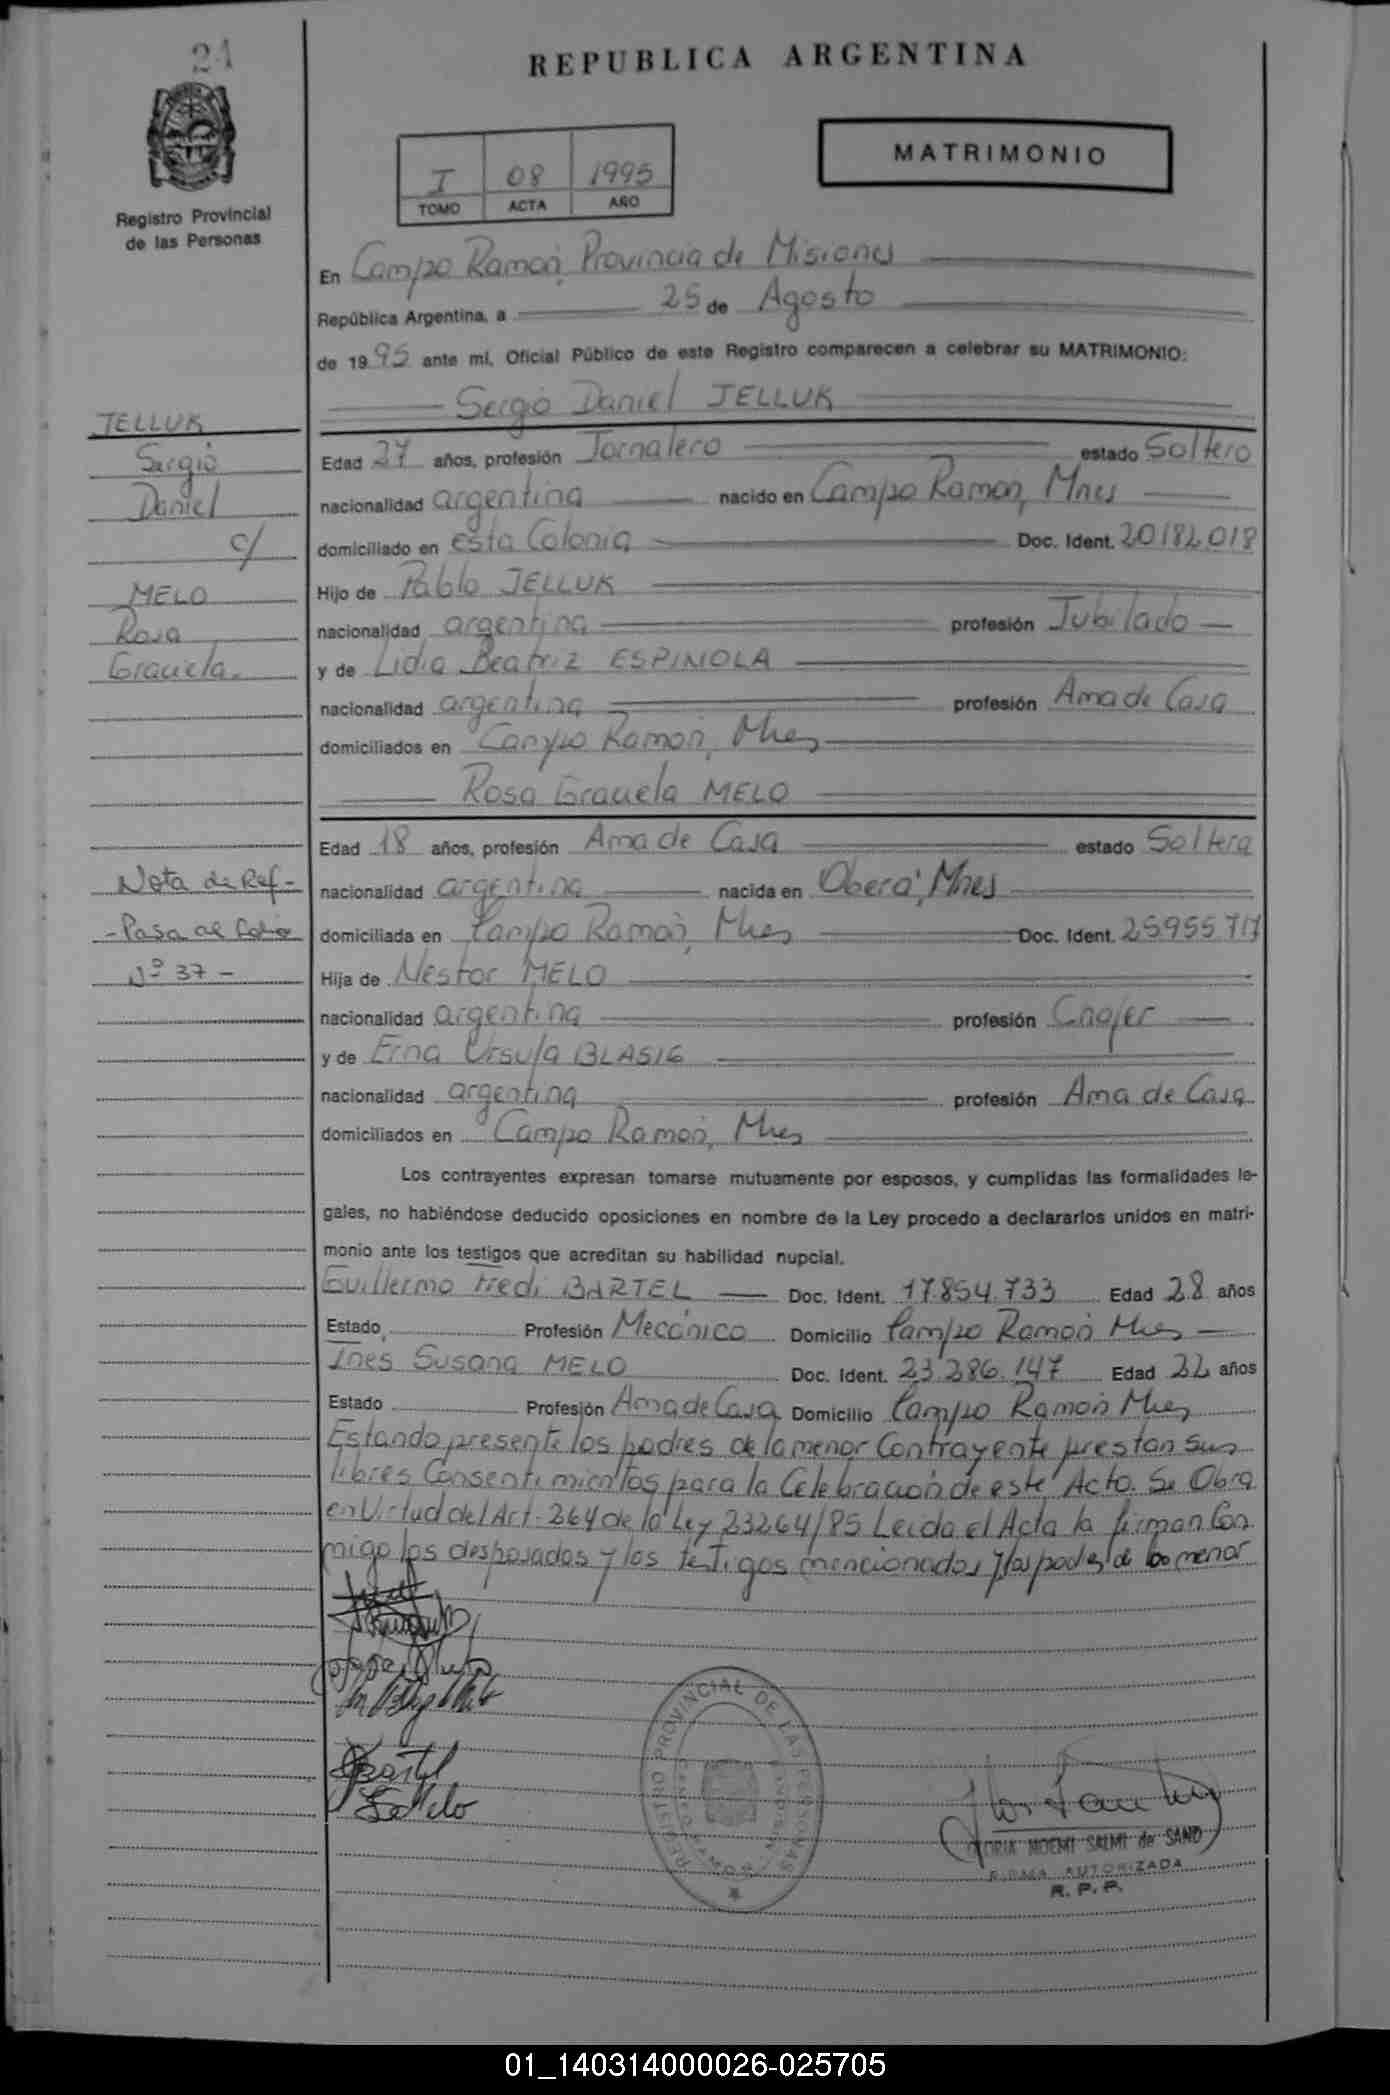 24
REPUBLICA ARGENTINA
MATRIMONIO
I 08 1995
TOMO ACTA AÑO
Registro Provincial
de las Personas
En Campo Ramón, Provincia de Misiones
República Argentina, a 25 de Agosto
de 1995 ante mí, Oficial Público de este Registro comparecen a celebrar su MATRIMONIO:
Sergio Daniel JELLUK
JELLUK
Sergio
Daniel
c/
MELO
Rosa
Graciela.
Edad 27 años, profesión Jornalero estado Soltero
nacionalidad argentina nacido en Campo Ramón, Mnes
domiciliado en esta Colonia Doc. Ident. 20182018
Hijo de Pablo JELLUK
nacionalidad argentina profesión Jubilado
y de Lidia Beatriz ESPINOLA
nacionalidad argentina profesión Ama de Casa
domiciliados en Campo Ramón, Mnes
Rosa Graciela MELO
Edad 18 años, profesión Ama de Casa estado Soltera
nacionalidad argentina nacida en Oberá, Mnes
domiciliada en Campo Ramón, Mnes Doc. Ident. 25955717
Hija de Nestor MELO
nacionalidad argentina profesión Chofer
y de Erna Ursula BLASIG
nacionalidad argentina profesión Ama de Casa
domiciliados en Campo Ramón, Mnes
Nota de Ref-
-Pasa al folio
Nº 37-
Los contrayentes expresan tomarse mutuamente por esposos, y cumplidas las formalidades le-
gales, no habiéndose deducido oposiciones en nombre de la Ley procedo a declararlos unidos en matri-
monio ante los testigos que acreditan su habilidad nupcial.
Guillermo Fredi BARTEL Doc. Ident. 17.854.733 Edad 28 años
Estado Profesión Mecánico Domicilio Campo Ramón Mnes
Ines Susana MELO Doc. Ident. 23.286.147 Edad 22 años
Estado Profesión Ama de Casa Domicilio Campo Ramón Mnes
Estando presente los padres de la menor Contrayente prestan sus
libres Consentimientos para la Celebración de este Acto. Se Obra
en Virtud del Art. 264 de la Ley 23264/85 Leida el Acta la firman Con
migo los desposados y los testigos mencionados y los padres de la menor
Bartel
Melo
REGISTRO PROVINCIAL DE LAS PERSONAS
GLORIA NOEMI SALMI de SAND
FIRMA AUTORIZADA
R. P. P.
01_140314000026-025705